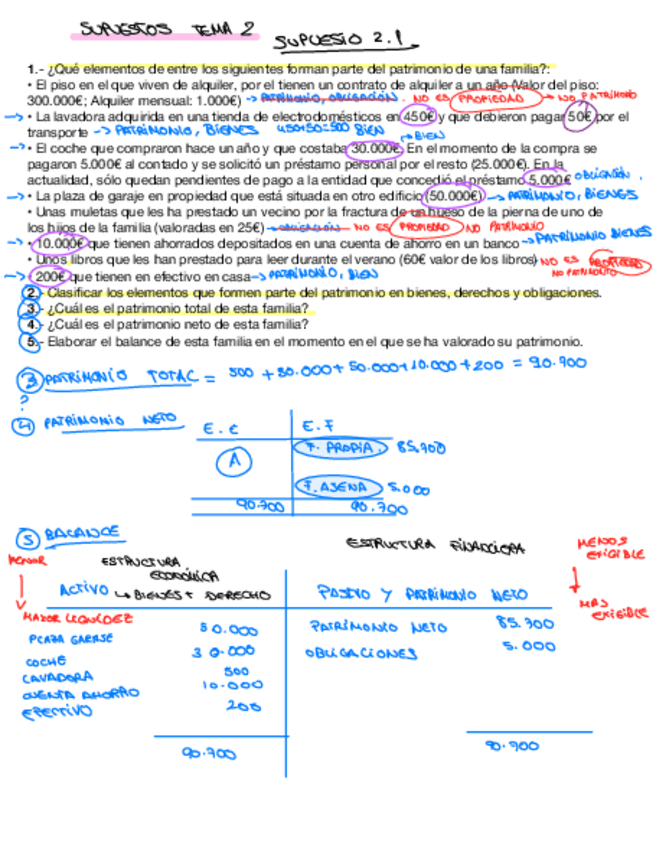 SUPUESTOS TEMA 2
SUPUESTO 2.1.
1.- ¿Qué elementos de entre los siguientes forman parte del patrimonio de una familia?:
• El piso en el que viven de alquiler, por el tienen un contrato de alquiler a un año (Valor del piso:
300.000€; Alquiler mensual: 1.000€) → PATRIMONIO, OBLIGACIÓN. NO ES PROPIEDAD → NO PATRIMONIO
→ • La lavadora adquirida en una tienda de electrodomésticos en 450€ y que debieron pagar 50€ por el
transporte → PATRIMONIO, BIENES 450+50=500 BIEN
→ BIEN
→ • El coche que compraron hace un año y que costaba 30.000€. En el momento de la compra se
pagaron 5.000€ al contado y se solicitó un préstamo personal por el resto (25.000€). En la
actualidad, sólo quedan pendientes de pago a la entidad que concedió el préstamo 5.000€ OBLIGACIÓN.
→ • La plaza de garaje en propiedad que está situada en otro edificio (50.000€) → PATRIMONIO, BIENES
• Unas muletas que les ha prestado un vecino por la fractura de un hueso de la pierna de uno de
los hijos de la familia (valoradas en 25€) → OBLIGACIÓN NO ES PROPIEDAD NO PATRIMONIO
→ • 10.000€ que tienen ahorrados depositados en una cuenta de ahorro en un banco → PATRIMONIO BIENES
• Unos libros que les han prestado para leer durante el verano (60€ valor de los libros) NO ES PROPIEDAD
NO PATRIMONIO
→ • 200€ que tienen en efectivo en casa → PATRIMONIO, BIEN
2.- Clasificar los elementos que formen parte del patrimonio en bienes, derechos y obligaciones.
3.- ¿Cuál es el patrimonio total de esta familia?
4.- ¿Cuál es el patrimonio neto de esta familia?
5.- Elaborar el balance de esta familia en el momento en el que se ha valorado su patrimonio.
3 PATRIMONIO TOTAL = 500 + 30.000 + 50.000 + 10.000 + 200 = 90.700
?
4 PATRIMONIO NETO
E. E E. F
F. PROPIA. 85.700
A
F. AJENA 5.000
90.700 90.700
5 BALANCE
ESTRUCTURA ECONÓMICA
ESTRUCTURA FINANCIERA
MENOR
MENOS EXIGIBLE
ACTIVO ↳ BIENES + DERECHO
PASIVO Y PATRIMONIO NETO
MAYOR LIQUIDEZ
MAS EXIGIBLE
PLAZA GARAJE 50.000
PATRIMONIO NETO 85.700
COCHE 30.000
OBLIGACIONES 5.000
LAVADORA 500
CUENTA AHORRO 10.000
EFECTIVO 200
90.700 90.700